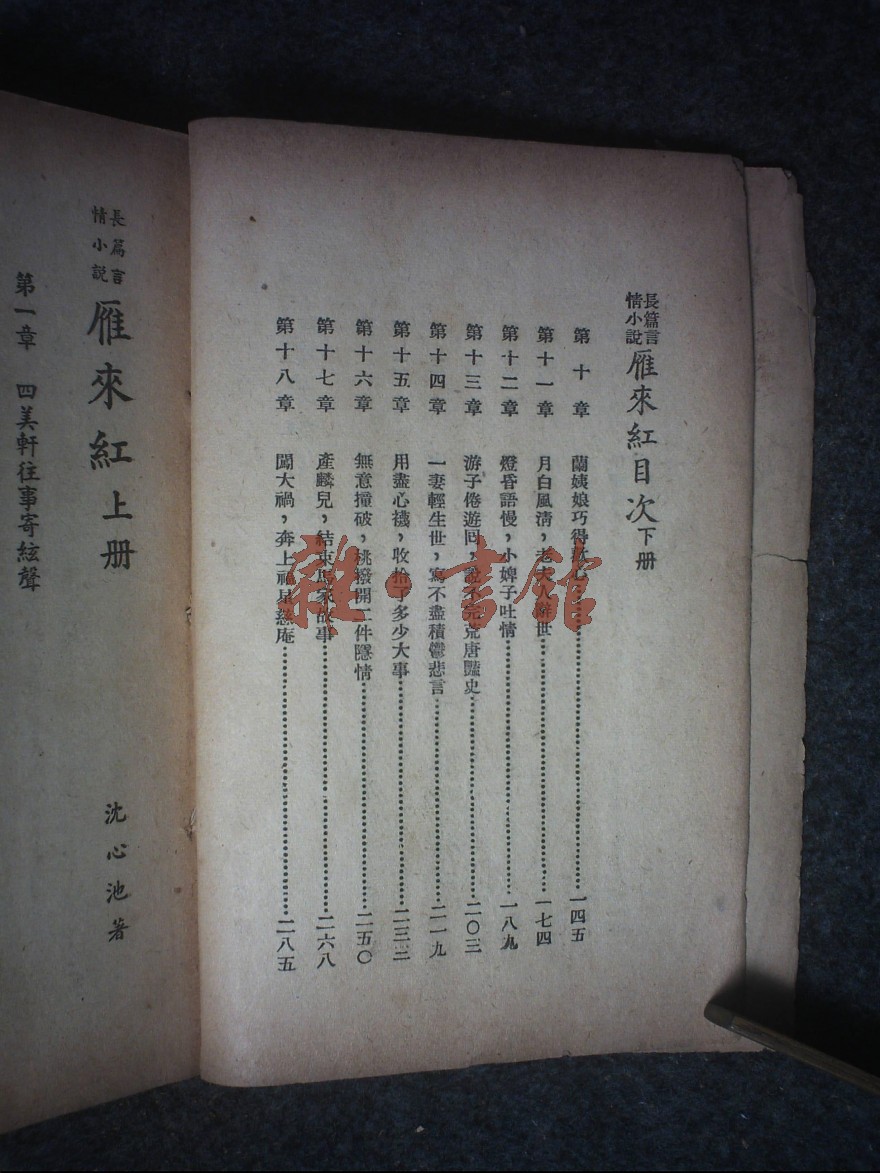 長篇言情小說 雁來紅目次 下册
第十章 蘭姨娘巧得 心……一四五
第十一章 月白風淸，老夫人辭世……一七四
第十二章 燈昏語慢，小婢子吐情……一八九
第十三章 游子倦遊回，說不完荒唐豔史……二〇三
第十四章 一妻輕生世，寫不盡積鬱悲言……二一九
第十五章 用盡心機，收拾了多少大事……二三三
第十六章 無意撞破，桃撥開二件隱情……二五〇
第十七章 產麟兒，結束馬家故事……二六八
第十八章 闖大禍，奔上福星慈庵……二八五
長篇言情小説 雁來紅上册
沈心池著
第一章 四美軒往事寄絃聲
雜·書館